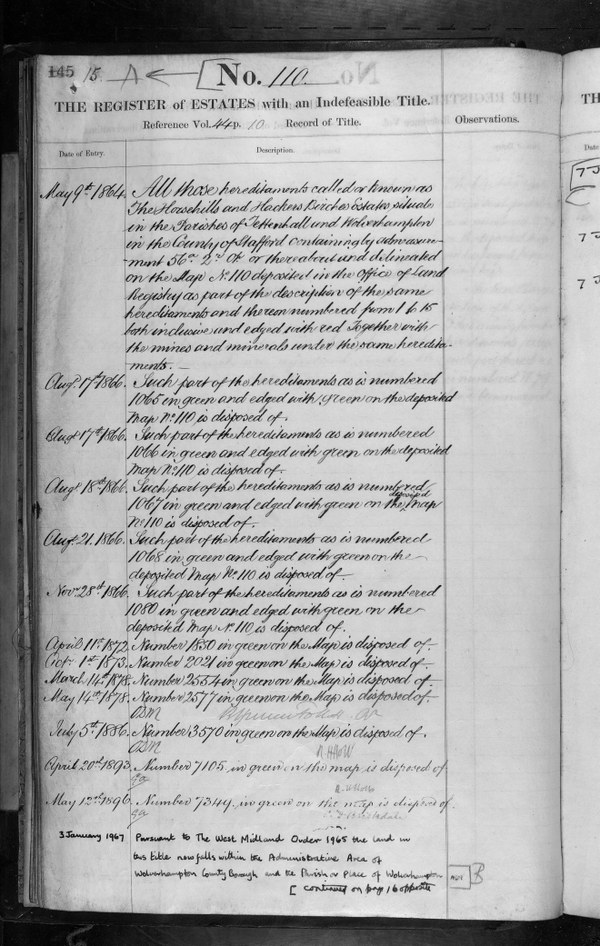 145 15. A [No. 110.
THE REGISTER of ESTATES with an Indefeasible Title.
Reference Vol. 44 p. 10 Record of Title.
Observations.
Date of Entry.
Description.
May 9th 1864. All those hereditaments called or known as
The Horsehills and Hackers Birches Estates situate
in the Parishes of Tettenhall and Wolverhampton
in the County of Stafford containing by admeasure-
-ment 56a. 2r. 0p. or thereabout and delineated
on the Map No. 110 deposited in the Office of Land
Registry as part of the description of the same
hereditaments and thereon numbered from 1 to 15
both inclusive and edged with red Together with
the mines and minerals under the same heredita-
-ments. —
Augt 17th 1866. Such part of the hereditaments as is numbered
1065 in green and edged with green on the deposited
Map No. 110 is disposed of.
Augt 17th 1866. Such part of the hereditaments as is numbered
1066 in green and edged with green on the deposited
Map No. 110 is disposed of.
Augt 18th 1866. Such part of the hereditaments as is numbered
1067 in green and edged with green on the deposited Map
No. 110 is disposed of.
Augt. 21. 1866. Such part of the hereditaments as is numbered
1068 in green and edged with green on the
deposited Map No. 110 is disposed of.
Novr 28th 1866. Such part of the hereditaments as is numbered
1080 in green and edged with green on the
deposited Map No. 110 is disposed of.
April 11th 1872. Number 1850 in green on the Map is disposed of.
Octr 1st 1873. Number 2021 in green on the Map is disposed of.
March 14th 1878. Number 2554 in green on the Map is disposed of.
May 14th 1878. Number 2577 in green on the Map is disposed of.
July 5th 1886. Number 3570 in green on the Map is disposed of.
April 20th 1893. Number 7105 in green on the map is disposed of.
May 12th 1896. Number 7349 in green on the map is disposed of.
3 January 1967 Pursuant to The West Midland Order 1965 the land in
this title now falls within the Administrative Area of
Wolverhampton County Borough and the Parish or Place of Wolverhampton
[ continued on page 16 opposite
B